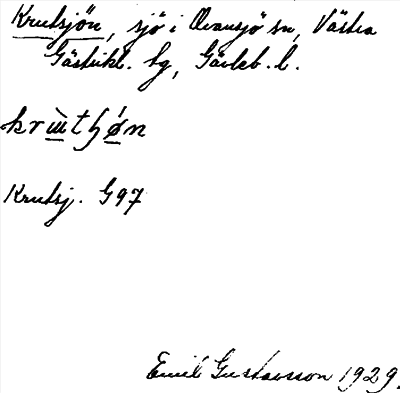 Krutsjön, sjö i Ovansjö sn, Västra
Gästrikl. tg, Gävleb. l.
krɯ̀tɧǿn
Krutsj. G97
Emil Gustavsson 1929.